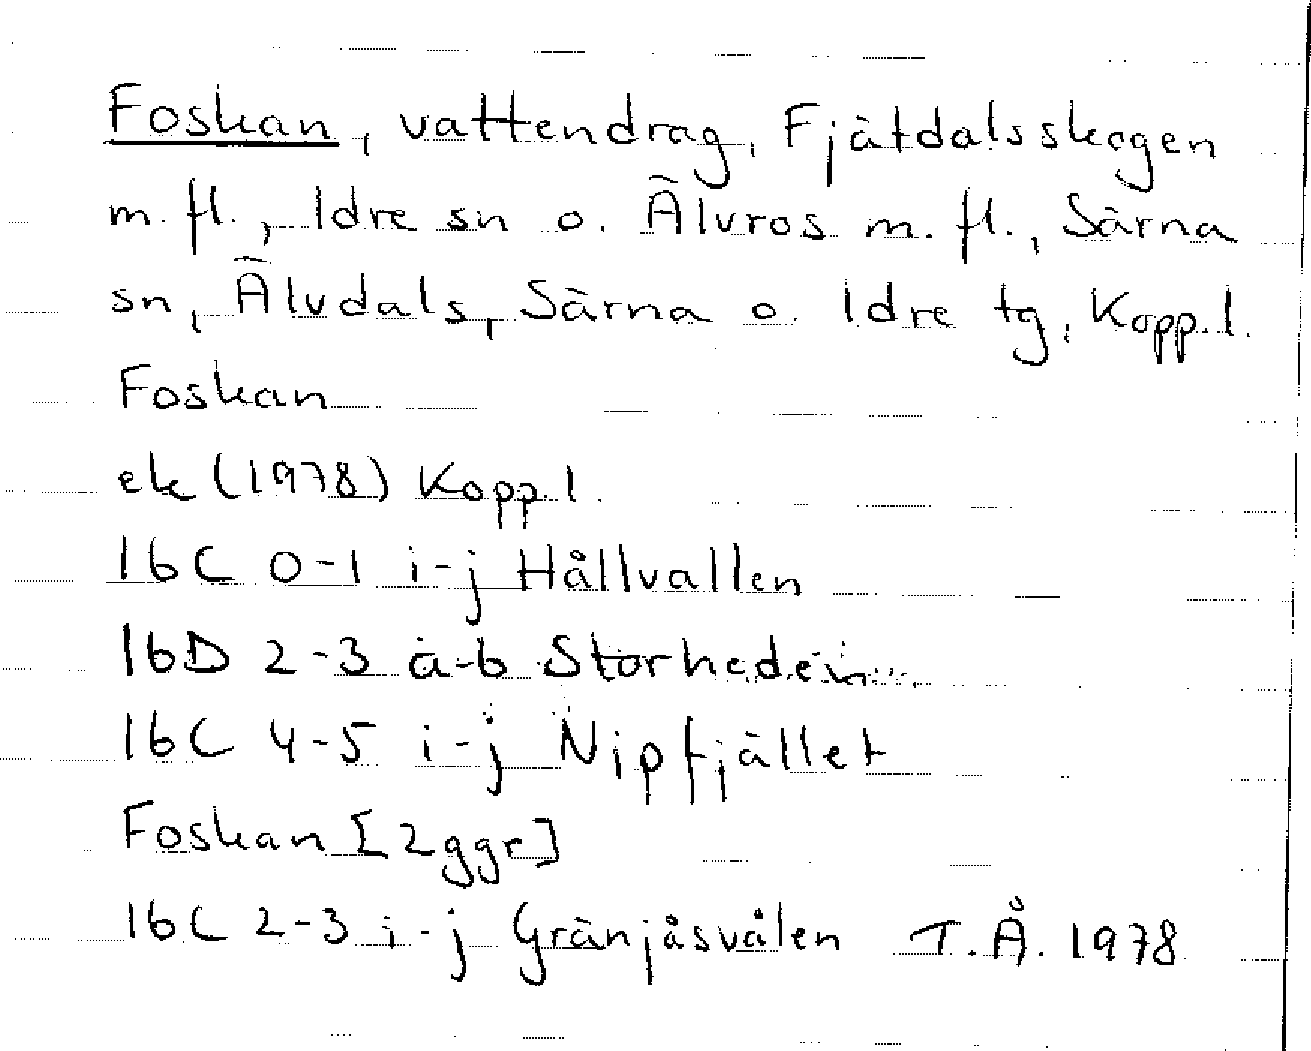 Foskan, vattendrag, Fjätdalsskogen
m. fl., Idre sn o. Älvros m. fl., Särna
sn, Älvdals, Särna o. Idre tg, Kopp. l.
Foskan
ek (1978) Kopp. l.
16C 0-1 i-j Hållvallen
16D 2-3 a-b Storheden
16C 4-5 i-j Nipfjället
Foskan [2 ggr]
16C 2-3 i-j Gränjåsvålen T.Å. 1978